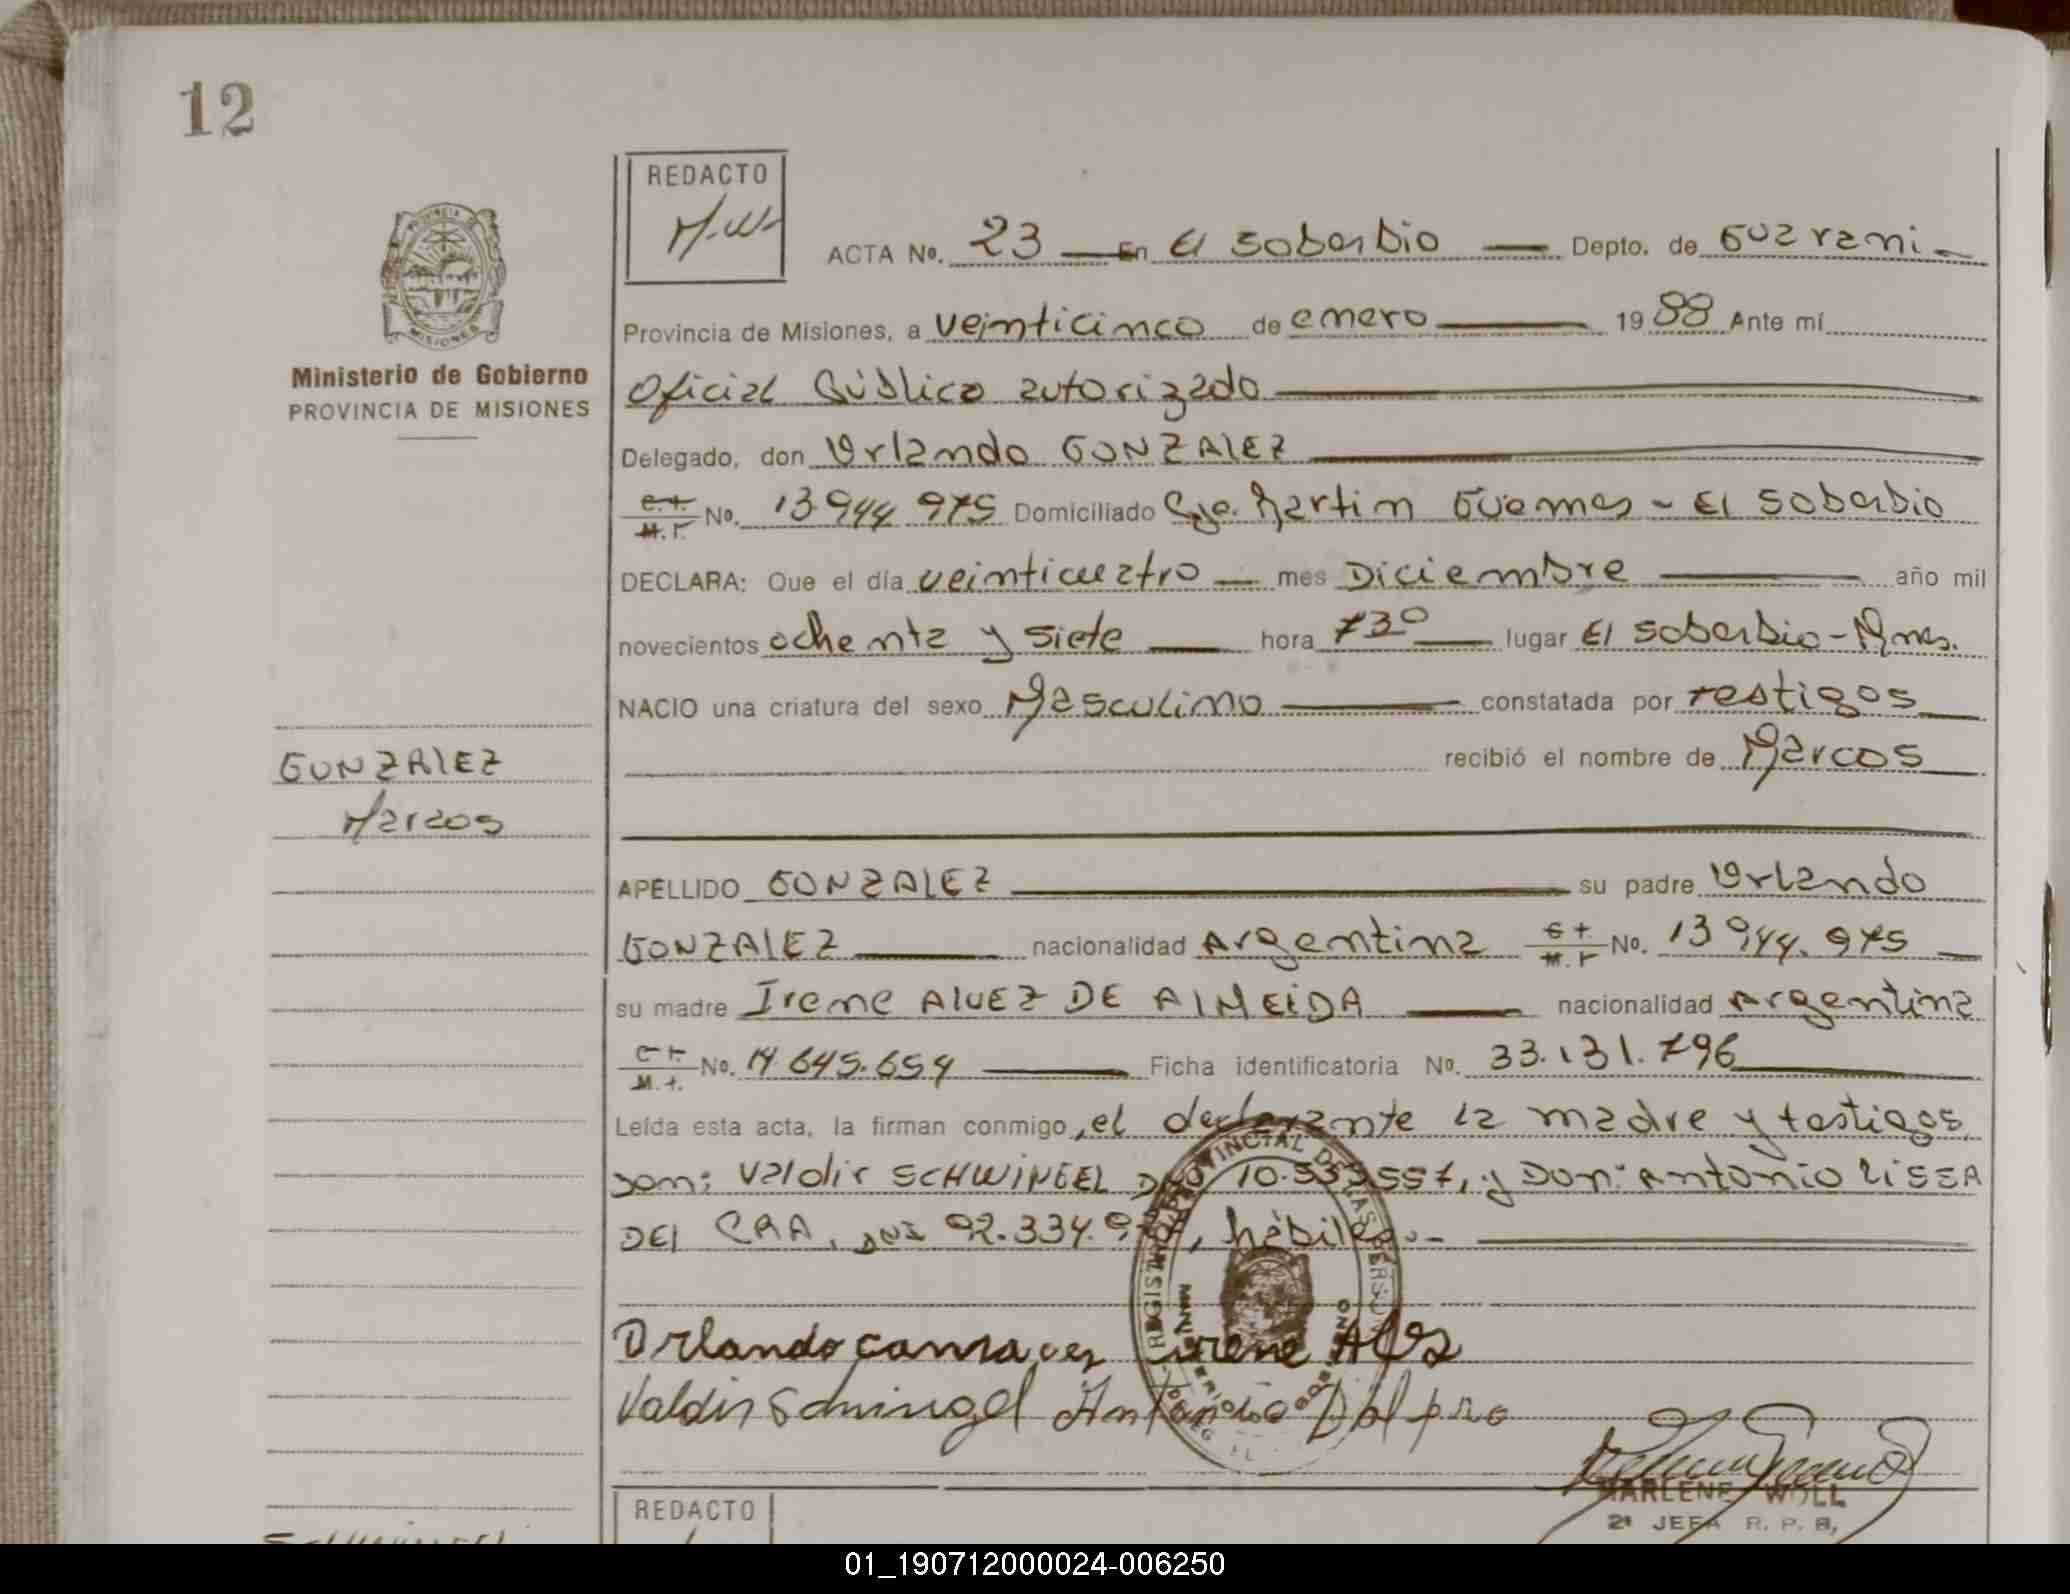 12
REDACTO
M.W.
ACTA No. 23 En El Soberbio Depto. de Guarani
Provincia de Misiones, a veinticinco de enero 1988 Ante mí
Oficial Público autorizado
Ministerio de Gobierno
PROVINCIA DE MISIONES
Delegado, don Orlando GONZALEZ
No. 13.944.975 Domiciliado Cje. Martin Guemes - El Soberbio
DECLARA: Que el día veinticuatro mes Diciembre año mil
novecientos ochenta y siete hora 730 lugar El Soberbio - Mnes.
NACIO una criatura del sexo Masculino constatada por testigos
recibió el nombre de Marcos
GONZALEZ
Marcos
APELLIDO GONZALEZ su padre Orlando
GONZALEZ nacionalidad Argentina No. 13.944.975
su madre Irene ALVEZ DE ALMEIDA nacionalidad Argentina
No. 14.645.654 Ficha identificatoria No. 33.131.796
Leída esta acta, la firman conmigo, el declarante la madre y testigos
son: Valdir SCHWINGEL 10.555.557, y Don: Antonio
DEL DNI 92.334.9 , hábiles.-
Orlando Irene
Valdir Antonio
MARLENE WOLL
2ª JEFA R. P. B,
REDACTO
01_190712000024-006250